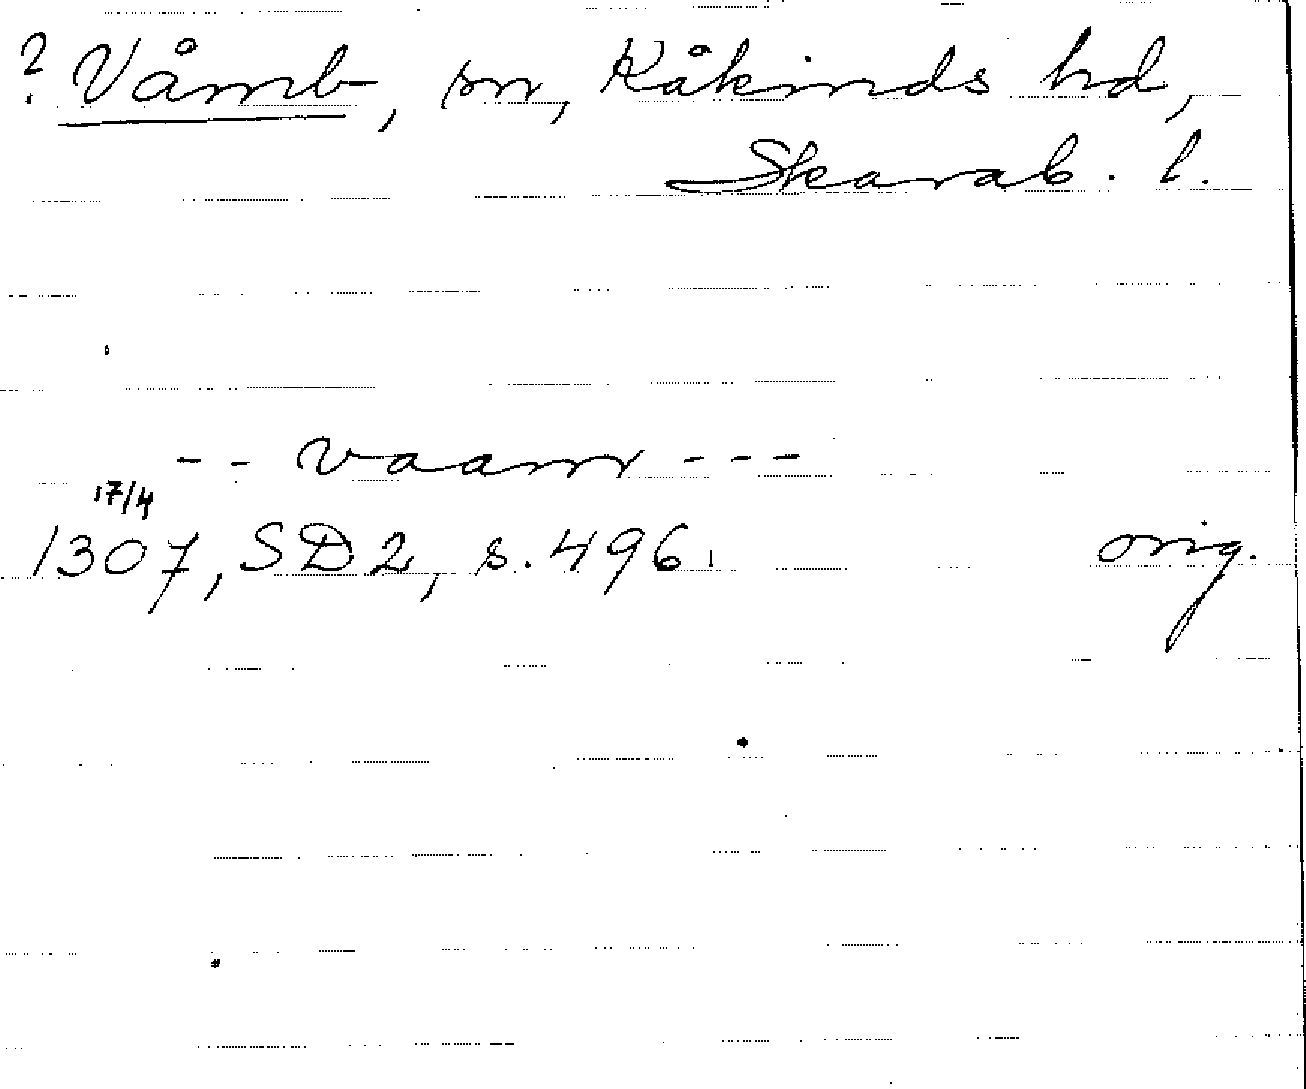 ? Våmb, sn, Kåkinds hd,
Skarab. l.
-- vaam ---
17/4
1307, SD2, s. 496.
orig.